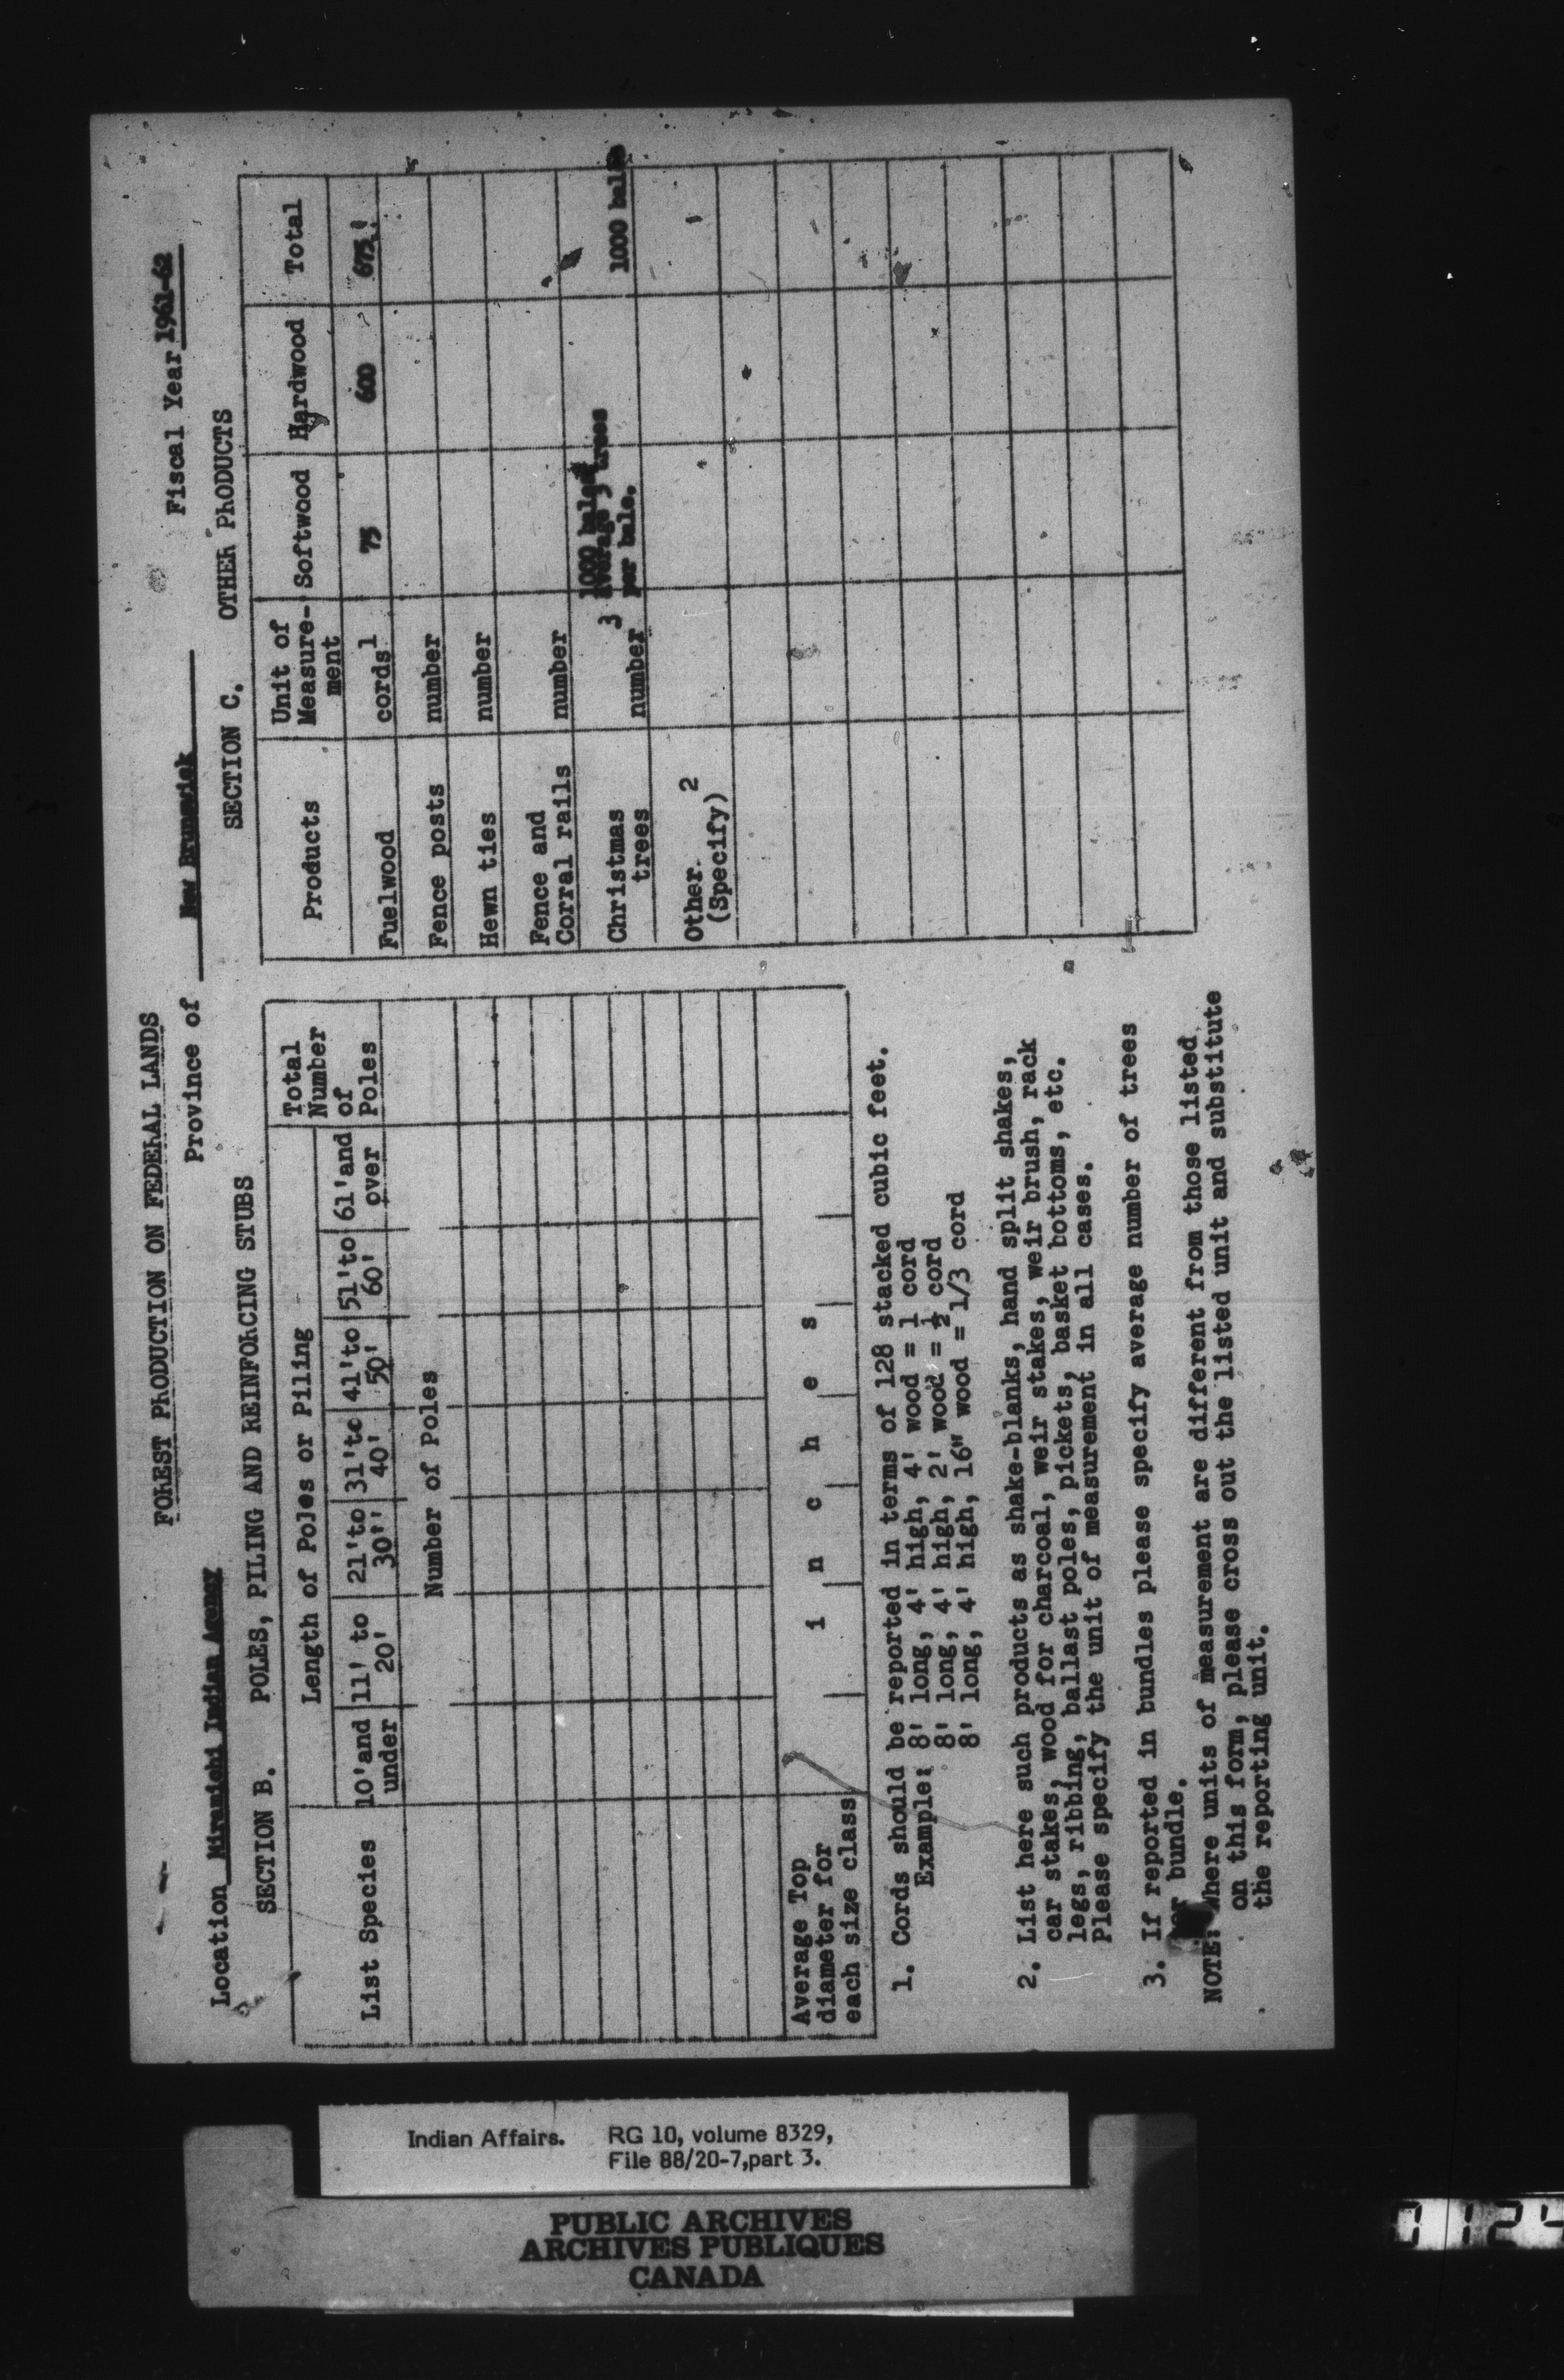 FOREST PRODUCTION ON FEDERAL LANDS
Location Miramichi Indian Agency Province of New Brunswick Fiscal Year 1961-62
SECTION B. POLES, PILING AND REINFORCING STUBS
Length of Poles or Piling
List Species
10'and under
11' to 20'
21'to 30''
31'to 40'
41'to 50'
51'to 60'
61'and over
Total Number of Poles
Number of Poles
Average Top
diameter for
each size class
i n c h e s
SECTION C. OTHER PRODUCTS
Products Unit of Measure-ment Softwood Hardwood Total
Fuelwood cords 1 75 600 675
Fence posts number
Hewn ties number
Fence and
Corral rails number
Christmas
trees number 3 1000 bales average 3 trees per bale. 1000 bales
Other. 2
(Specify)
1. Cords should be reported in terms of 128 stacked cubic feet.
Example: 8' long, 4' high, 4' wood = 1 cord
8' long, 4' high, 2' wood = ½ cord
8' long, 4' high, 16" wood = 1/3 cord
2. List here such products as shake-blanks, hand split shakes,
car stakes, wood for charcoal, weir stakes, weir brush, rack
legs, ribbing, ballast poles, pickets, basket bottoms, etc.
Please specify the unit of measurement in all cases.
3. If reported in bundles please specify average number of trees
per bundle.
NOTE: Where units of measurement are different from those listed
on this form, please cross out the listed unit and substitute
the reporting unit.
Indian Affairs. RG 10, volume 8329,
File 88/20-7,part 3.
PUBLIC ARCHIVES
ARCHIVES PUBLIQUES
CANADA